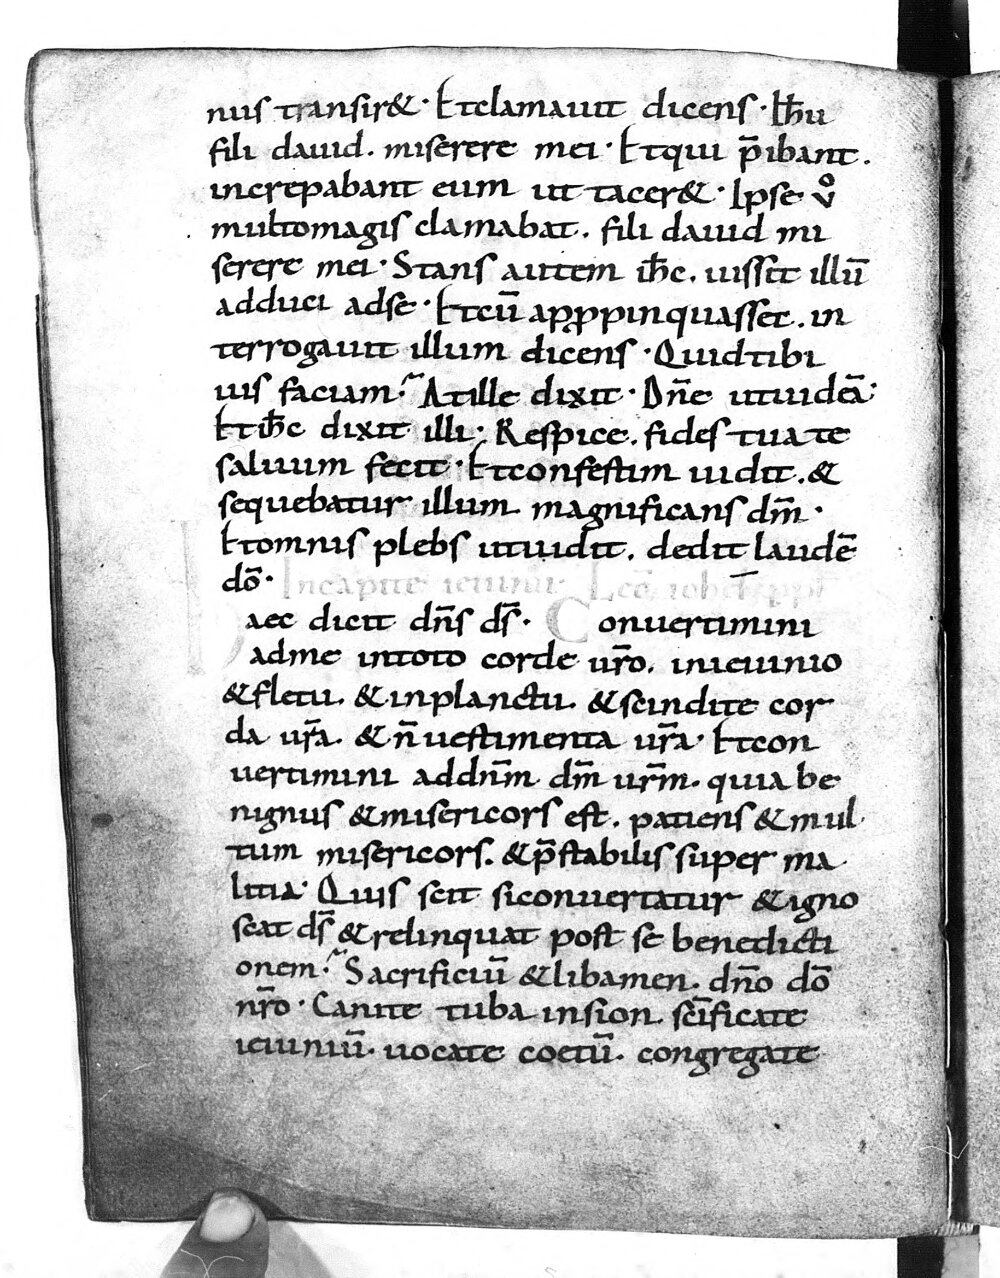 nus transir&· Et clamauit dicens· ih̅u
fili dauid. miserere mei· Et qui p̅ibant.
increpabant eum ut tacer&· Ipse v̊
multo magis clamabat. fili dauid mi
serere mei· Stans autem ih̅c. iussit illu̅
adduci adse· Et cu̅ appropinquasset. in
terrogauit illum dicens· Quid tibi
uis faciam· At ille dixit· Dn̅e ut uidea̅·
Et ih̅c dixit illi· Respice. fides tua te
saluum fecit· Et confestim uidit. &
sequebatur illum magnificans dm̅·
Et omnis plebs ut uidit. dedit laude̅
do̅· In capite ieiunii· Lec̅ iohel pph̅
Haec dicit dn̅s ds̅· Conuertimini
adme intoto corde ur̅o. inieiunio
& fletu. & inplanctu. & scindite cor
da ur̅a. & n̅ uestimenta ur̅a· Et con
uertimini addnm̅ dm̅ urm̅. quia be
nignus & misericors est. patiens & mul
tum misericors. & p̅stabilis super ma
litia· Quis scit si conuertatur & igno
scat ds̅ & relinquat post se benedicti
onem· Sacrificiu̅ & libamen. dn̅o do̅
nr̅o· Canite tuba insion. sc̅ificate
ieiuniu̅. uocate coetu̅. congregate